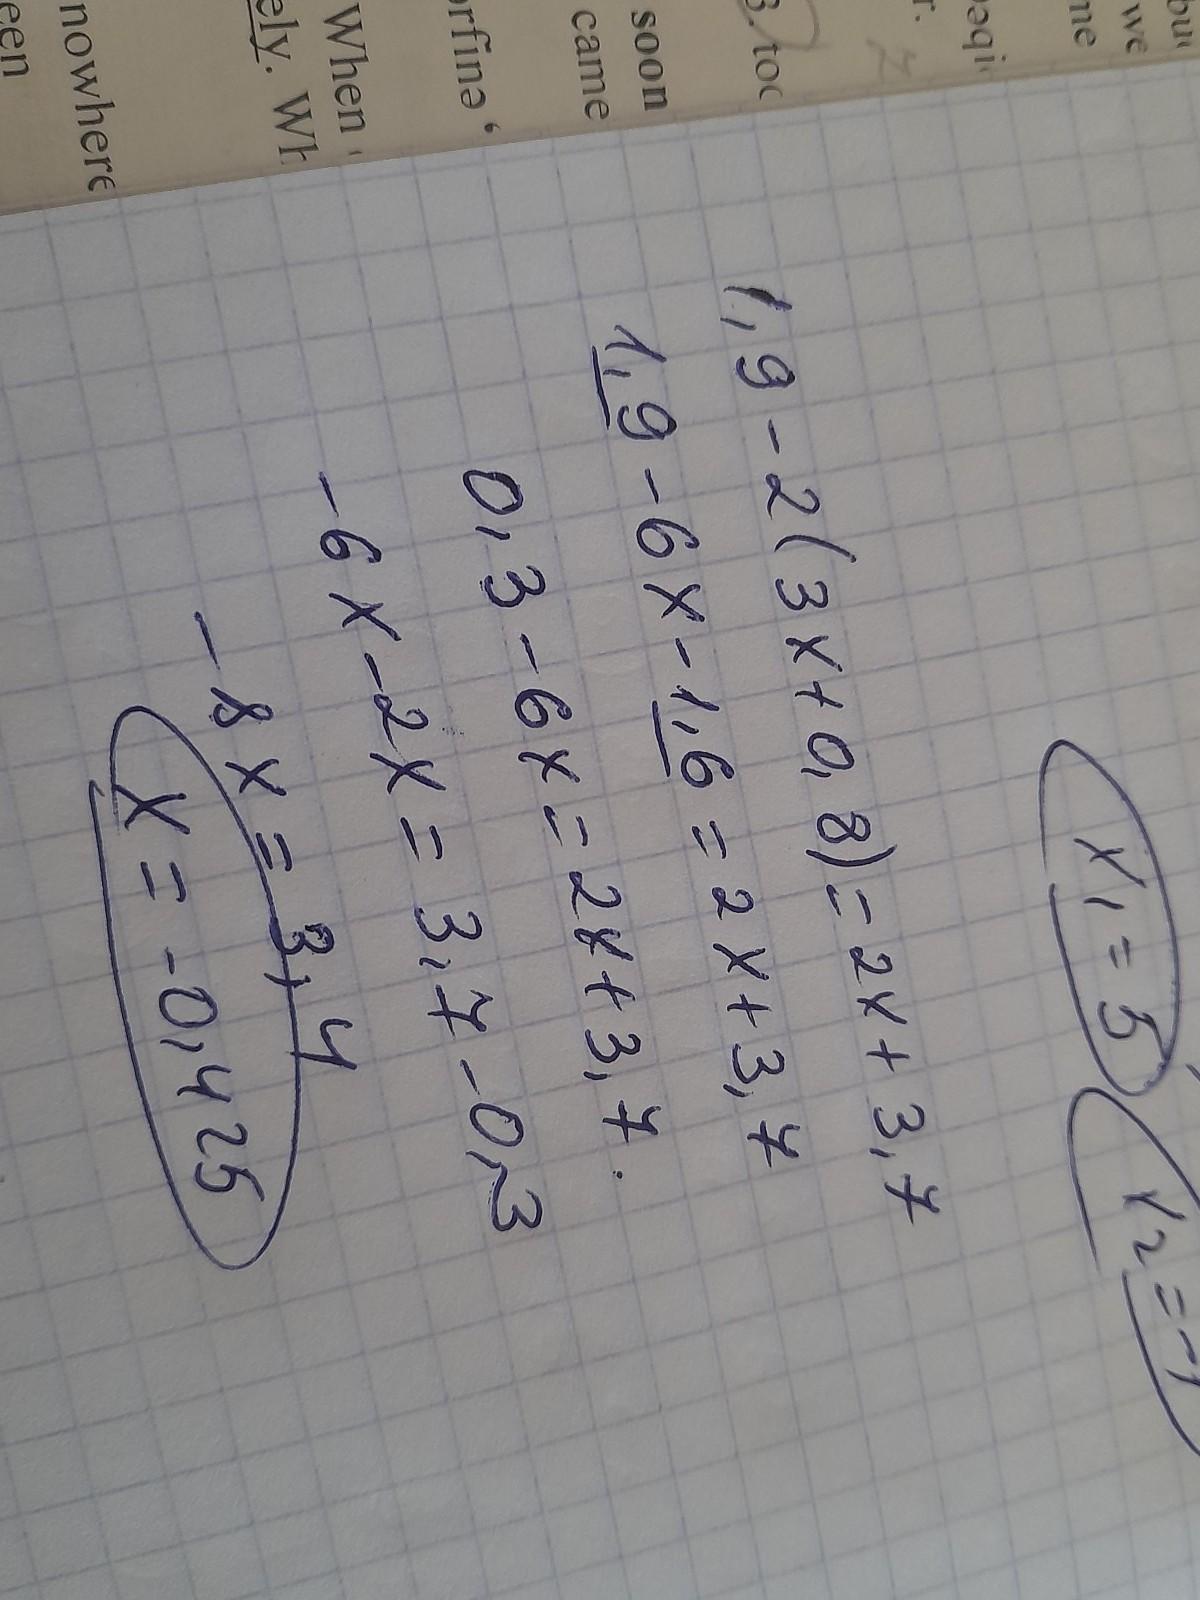 x₁ = 5 x₂ = -1
1,9 - 2(3x + 0,8) = 2x + 3,7
1,9 - 6x - 1,6 = 2x + 3,7
0,3 - 6x = 2x + 3,7.
-6x - 2x = 3,7 - 0,3
-8x = 3,4
x = -0,425
we
me
r.
3) too
soon
came
When
ely. Wh
nowhere
een